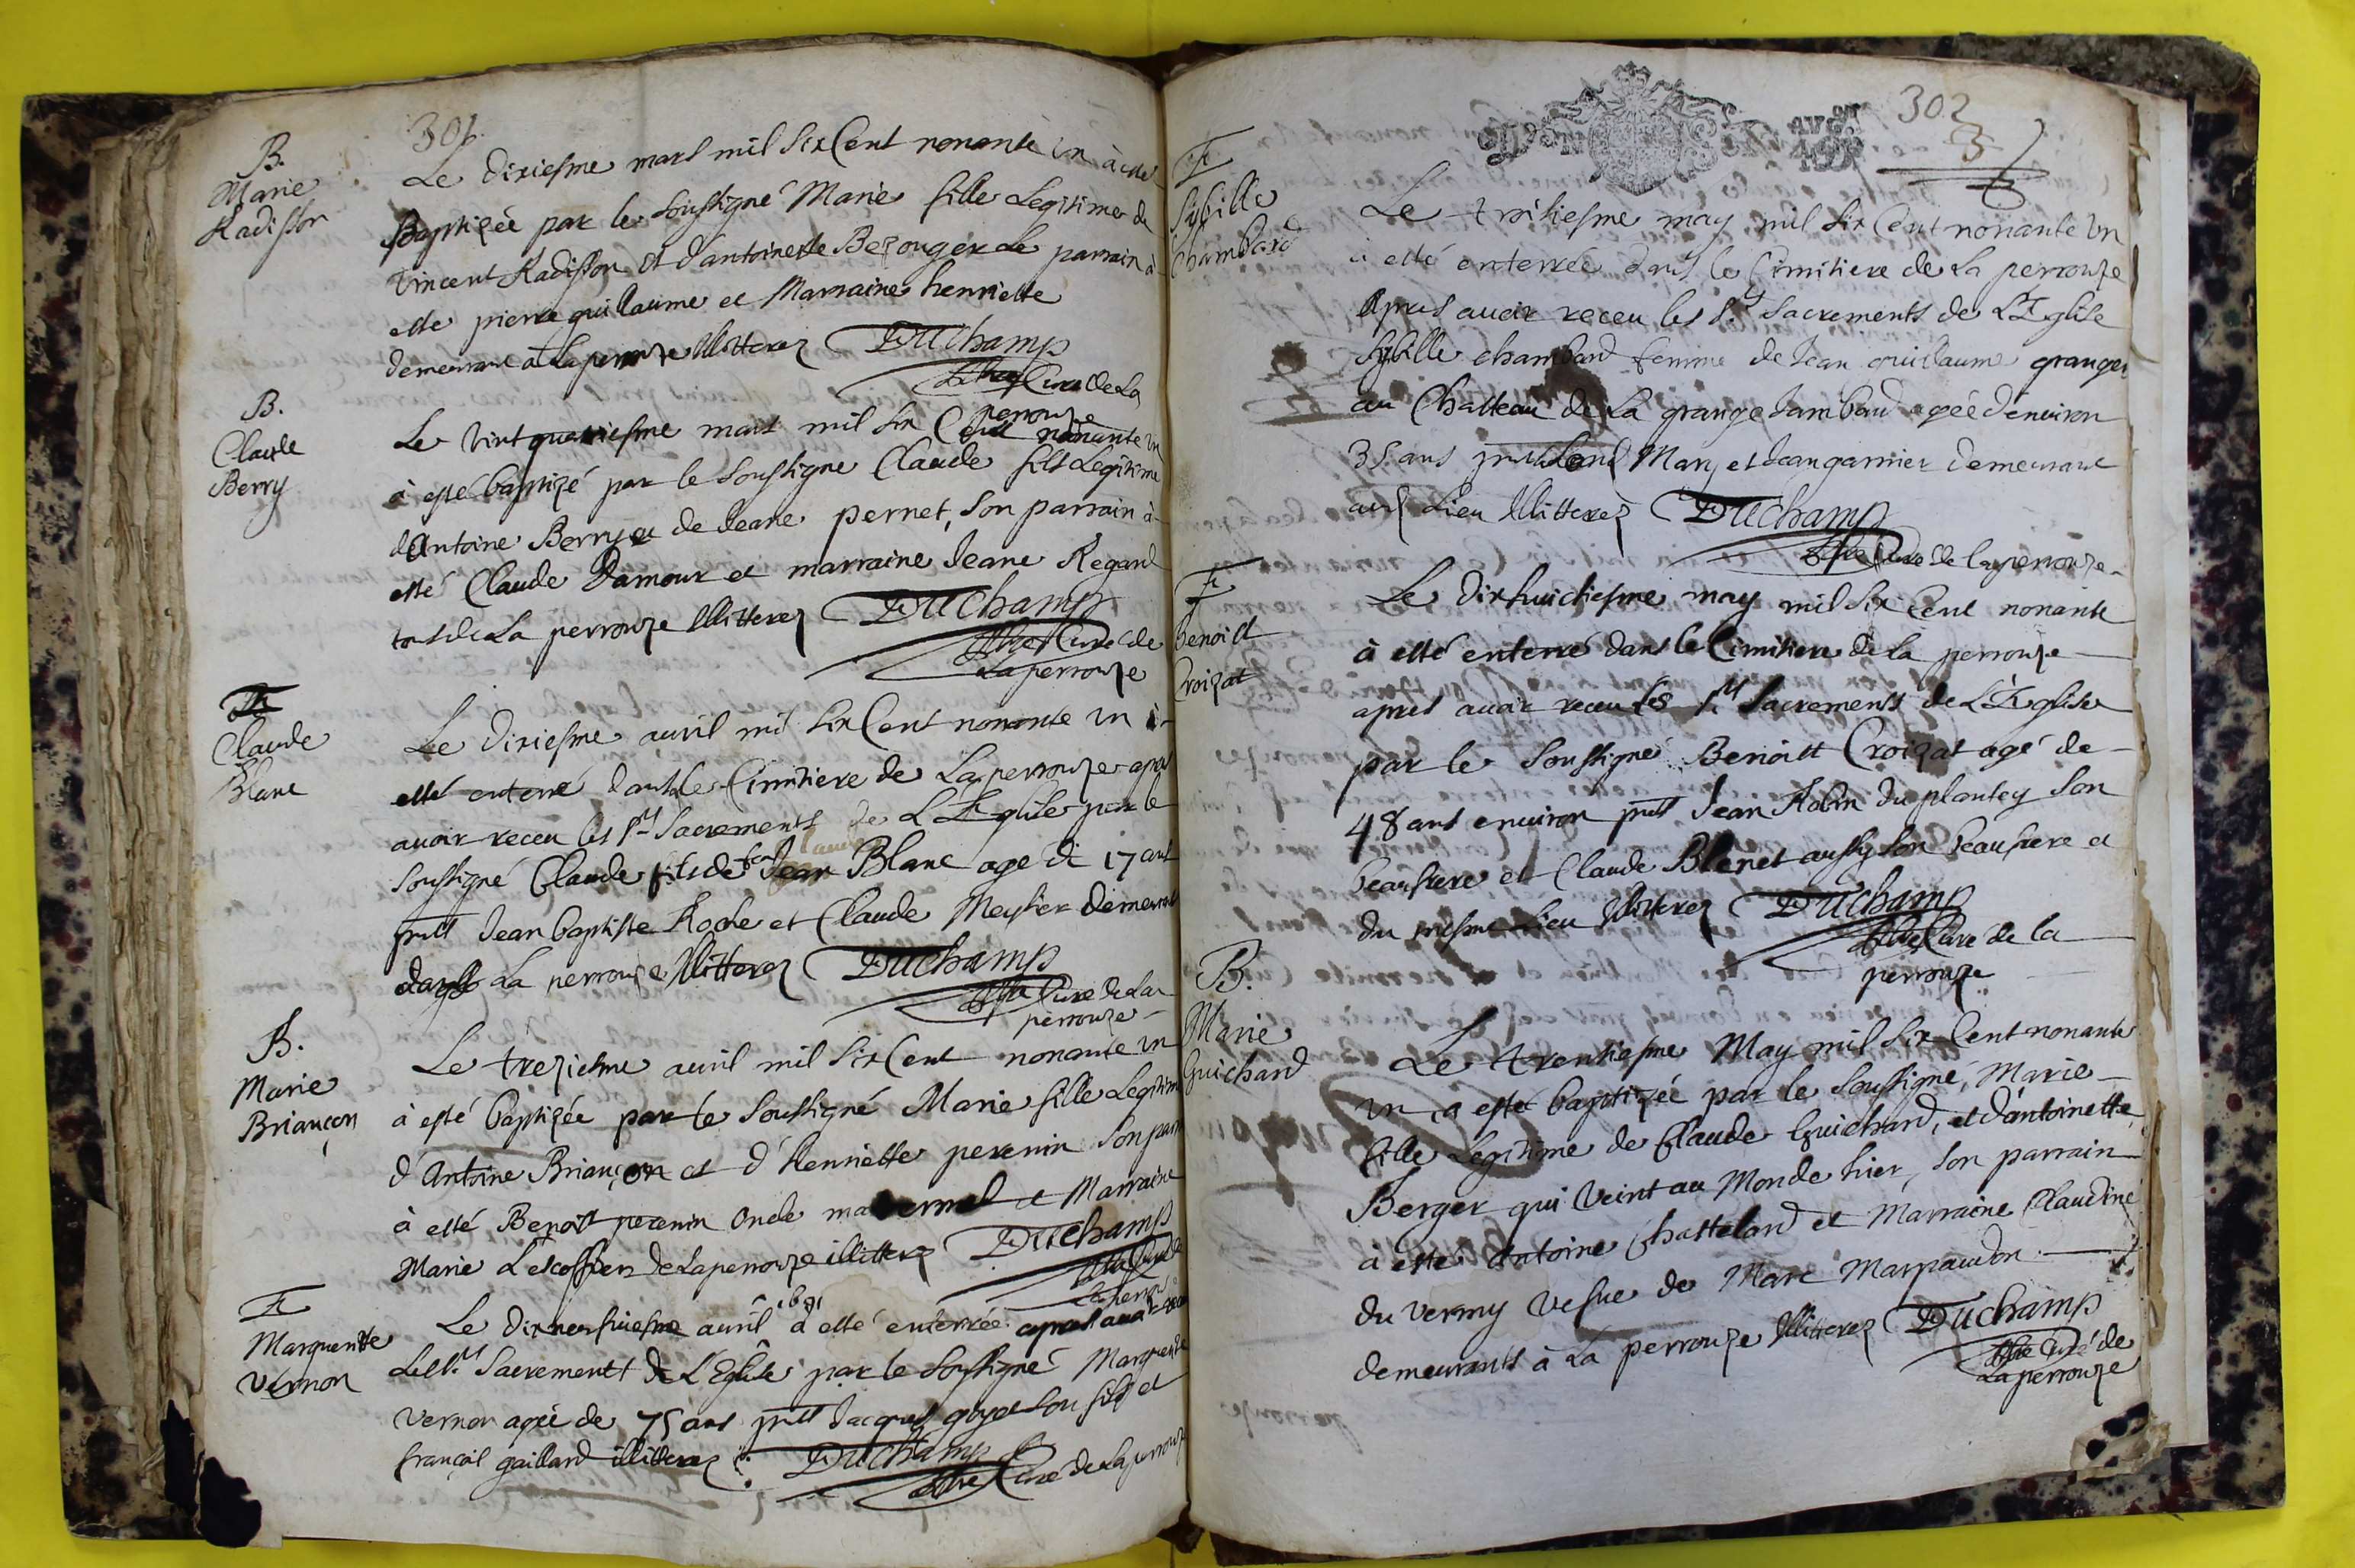 301
B.
Marie
Radisson
Le dixiesme mars mil six Cent nonante un à esté
Baptizée par le soussigné Marie fille Legitime de
vincent Radisson et d'antoinette Bezonger le parrain à
esté pierre guillaume et Marraine henriette
demeurant à Laperrouze Illitterez DUChamp
Curé de La
perrouze
B.
Claude
Berry
Le vint quatriesme mars mil six Cent nonante un
à esté baptizé par le soussigné Claude fils Legitime
d'Antoine Berry et de Jeane pernet, son parrain à
esté Claude Damour et marraine Jeane Regard
tous de La perrouze Illitterez DUChamp
Curé de
Laperrouze
Claude
Blanc
Le dixiesme avril mil six Cent nonante un à
esté enterré dans le Cimitiere de Laperrouze apres
avoir receu les sts Sacrements de L'Eglise par le
soussigné Claude fils de feu Jean Blanc agé de 17 ans
pnts Jean baptiste Roche et Claude Meysier demeurant
dans La perrouze Illitterez DUChamp
Curé de La
perrouze
B.
Marie
Briançon
Le treziesme avril mil six Cent nonante un
à esté baptizée par le soussigné Marie fille Legitime
d'Antoine Briançon et d'henriette perenin son parrain
à esté Benoist perenin oncle maternel et Marraine
Marie L'escoffier de Laperrouze illitterez DUChamp
F
Marguerite
Vernon
Le dixneufviesme avril 1691 à esté enterrée apres avoir receu
Les sts Sacrements de L'Eglise par le soussigné Marguerite
vernon agée de 75 ans pnts Jacques goyet son fils et
françois gaillard illitterez DUChamp
Curé de Laperrouze
302
3
F
Sybille
Chambard
Le troisiesme may mil six Cent nonante un
à esté enterrée dans le Cimitiere de La perrouze
Apres avoir receu les sts Sacrements de L'Eglise
Sybille chambard femme de Jean guillaume granger
au Chasteau de La grange Jambard agée d'environ
35 ans pnts Mary et Jean garnier demeurant
aud Lieu Illitterez DUChamp
Curé de laperrouze
F
Benoist
Croizat
Le dixhuictiesme may mil six Cent nonante
à esté enterré dans le Cimitiere de La perrouze
apres avoir receu les sts Sacrements de L'Eglise
par le soussigné Benoistt Croizat agé de
48 ans environ pnts Jean Robin du plantey son
beaufrere et Claude Blenet aussy son beaufrere et
du mesme Lieu Illitterez DUChamp
Curé de la
perrouze
B.
Marie
Guichard
Le trentiesme May mil six Cent nonante
un a esté baptizée par le soussigné, Marie
fille Legitime de Claude Guichard, et d'antoinette
Berger qui veint au Monde hier, son parrain
à esté Antoine Chattelard et Marraine Claudine
du vermy vesve de Marc Marpaudon
demeurants à La perrouze Illitterez DUChamp
Curé de
Laperrouze